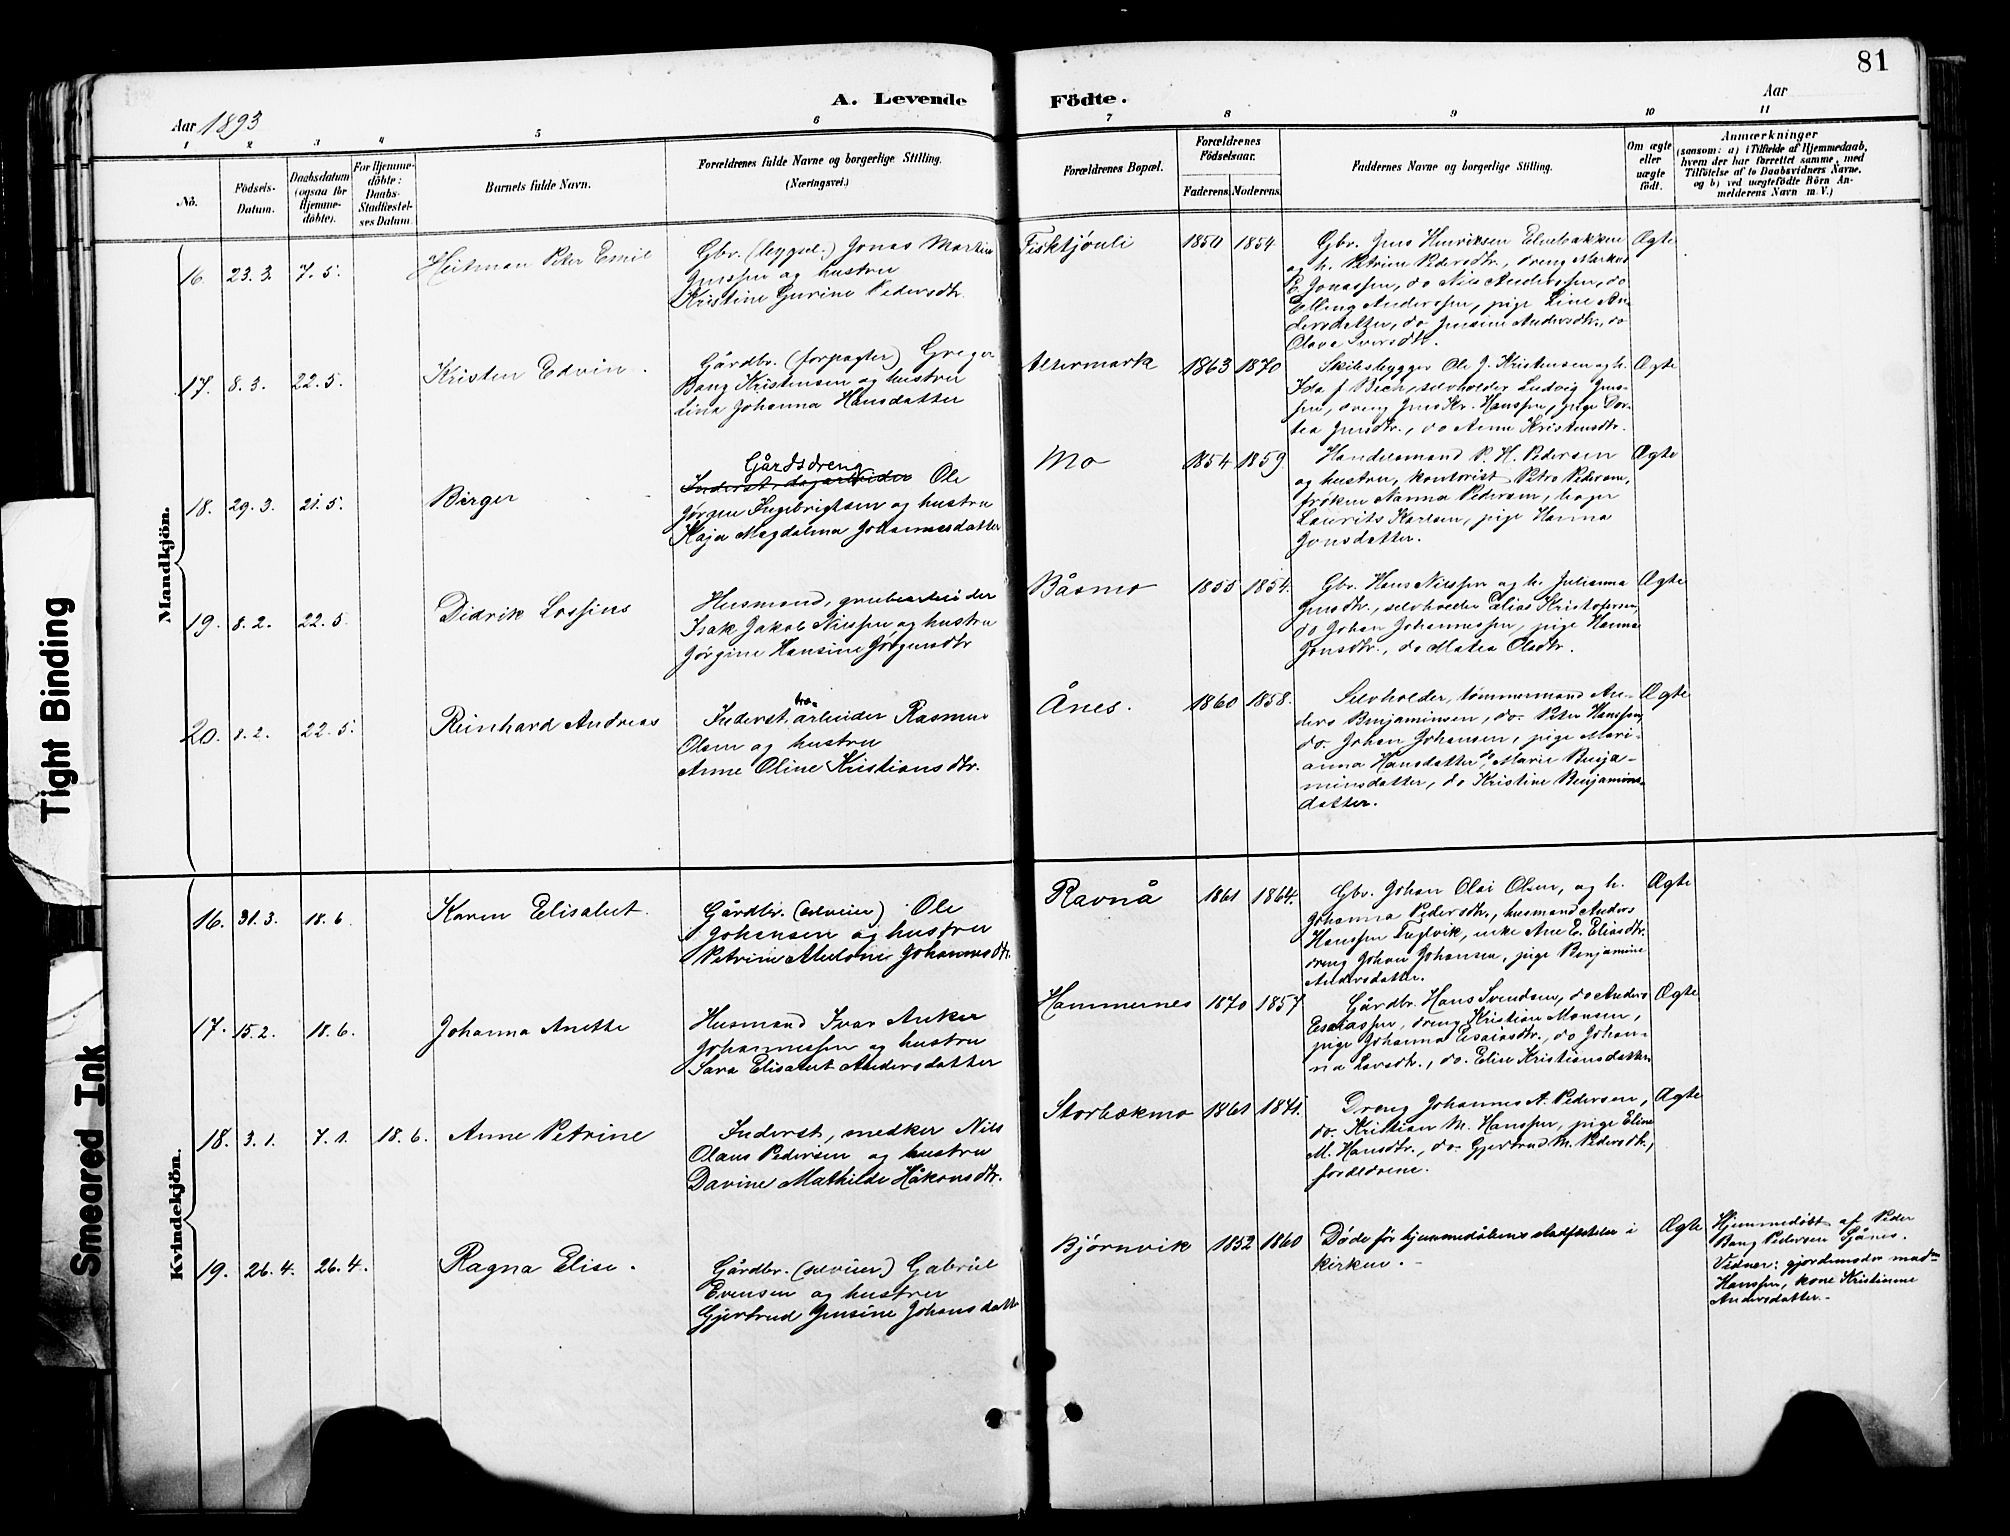 81
A. Levende Födte.
Aar 1893
Aar
1 2 3 4 5 6 7 8 9 10 11
No.
Födsels-
Datum.
Daabsdatum
(ogsaa for
Hjemme-
döbte).
For Hjemme-
döbte:
Daabs-
Stadfæstel-
ses Datum.
Barnets fulde Navn.
Forældrenes fulde Navne og borgerlige Stilling.
(Næringsvei.)
Forældrenes Bopæl.
Forældrenes
Födselsaar.
Faderens. Moderens.
Faddernes Navne og borgerlige Stilling.
Om ægte
eller
uægte
födt.
Anmærkninger
(saasom: a) i Tilfælde af Hjemmedaab,
hvem der har forrettet samme, med
Tilföielse af to Daabsvidners Navne,
og b) ved uægtefödte Börn An-
melderens Navn m. V.)
Mandkjön.
16. 23.3. 7.5. Heitman Peter Emil
Gbr. (bygsel.) Jonas Martin
Jenssen og hustru
Kristine Gurine Pedersdtr.
Fisktjönli 1850 1854
Gbr. Jens Henriksen Elvebakken
og h. Petrine Pedersdtr., dreng Markus
E. Jonassen, do Nils Anderssen, do
Elling Anderssen, pige Line An-
dersdatter, do Jensine Andersdtr., do
Olava Iversdtr.
Ægte
17. 8.3. 22.5. Kristen Edvin.
Gårdbr. (forpagter) Greger
Bang Kristensen og hustru
Lina Johanna Hansdatter
Altermark 1863 1870
Skibsbygger Ole J. Kristensen og h.
Ida f. Bech, selvholder Ludvig Jens-
sen, dreng Jens Kr. Hanssen, pige Dor-
tea Jensdtr., do Anne Kristensdtr.
Ægte
18. 29.3. 21.5. Birger
Gårdsdreng
Inderst, dagarbeider Ole
Jørgen Ingebrigtsen og hustru
Kaja Magdalena Johannesdatter
Mo 1854 1859
Handelsmand P. H. Pedersen
og hustru, kontorist Petro Pedersen,
frøken Nanna Pedersen, bager
Laurits Karlsen, pige Hanna
Jonsdatter.
Ægte
19. 8.2. 22.5. Didrik Lossius
Husmand, grubearbeider
Isak Jakob Nilssen og hustru
Jørgine Hansine Jørgensdtr
Båsmo 1855 1854.
Gbr. Hans Nilssen og h. Julianna
Jensdtr., selvholder Elias Kristofersen,
do Johan Johannessen, pige Hanna
Jonsdtr., do Matea Olsdtr.
Ægte
20. 8.2. 22.5. Reinhard Andreas
Inderst, arbeider Rasmus
Olsen og hustru
Anne Oline Kristiansdtr.
Ånes. 1860 1858.
Selvholder, tømmermand An-
ders Benjaminsen, do. Peter Hanssen,
do. Johan Johansen, pige Mari-
anna Hansdatter, do Marie Benja-
minsdatter, do Kristine Benjamins-
datter.
Ægte
Kvindekjön.
16. 31.3. 18.6. Karen Elisabet.
Gårdbr. (selveier) Ole
Johansen og hustru
Petrine Antonie Johannesdtr.
Ravnå 1861 1864.
Gbr. Johan Olai Olsen, og h.
Johanna Pedersdtr., husmand Anders
Hanssen, enke Ane E. Eliasdtr.
dreng Johan Johansen, pige Benjamine
Andersdatter.
Ægte
17. 15.2. 18.6. Johanna Anette
Husmand Ivar Anker
Johannessen og hustru
Sara Elisabet Andersdatter
Hammernes 1870 1857
Gårdbr. Hans Svendsen, do Anders
Esaiassen, dreng Kristian Monsen,
pige Johanna Esaiasdtr., do Johan-
na Larsdtr., do. Elise Kristiansdatter
Ægte
18. 3.1. 7.1. 18.6. Anne Petrine
Inderst, snedker Nils
Olaus Pedersen og hustru
Davine Mathilde Håkonsdtr.
Storbækmo 1861 1871.
Dreng Johannes A. Pedersen,
do. Kristian M. Hanssen, pige Eline
M. Hansdtr., do. Gjertrud M. Pedersdtr.,
forældrene.
Ægte
19. 26.4. 26.4. Ragna Elise.
Gårdbr. (selveier) Gabriel
Evensen og hustru
Gjertrud Jensine Johansdatter
Bjørnvik 1852 1860
Døde før hjemmedåbens stadfæstelse i
kirken.
Ægte
Hjemmedøbt af Peder
Bang Pedersen Gånes.
Vidner: gjordemoder mad-
Hanssen, kone Kristianne
Andersdatter.
Tight Binding
Smeared Ink